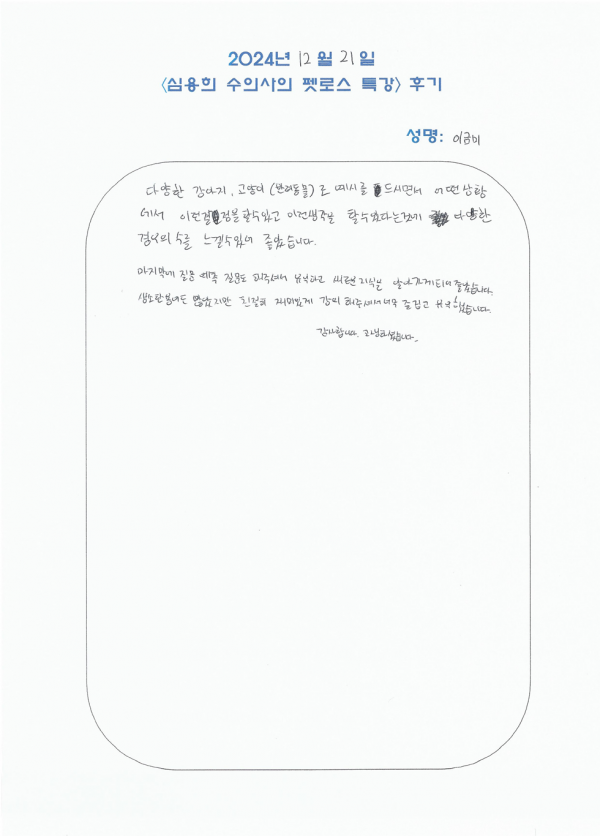 2024년 12월 21일
<심용희 수의사의 펫로스 특강> 후기
성명: 이금비
다양한 강아지, 고양이 (반려동물)로 예시를 드시면서 어떤 상황
에서 이런 결정을 할수있고 이런생각을 할수있다는것에 다양한
경우의 수를 느낄수있어 좋았습니다.
마지막에 질문 해주셔서 유익하고 새로운 지식을 알아가게되어 좋았습니다.
생소한분야도 많았지만 친절히 재미있게 강의 해주셔서너무 즐겁고 유익했습니다.
감사합니다. 고생하셨습니다.